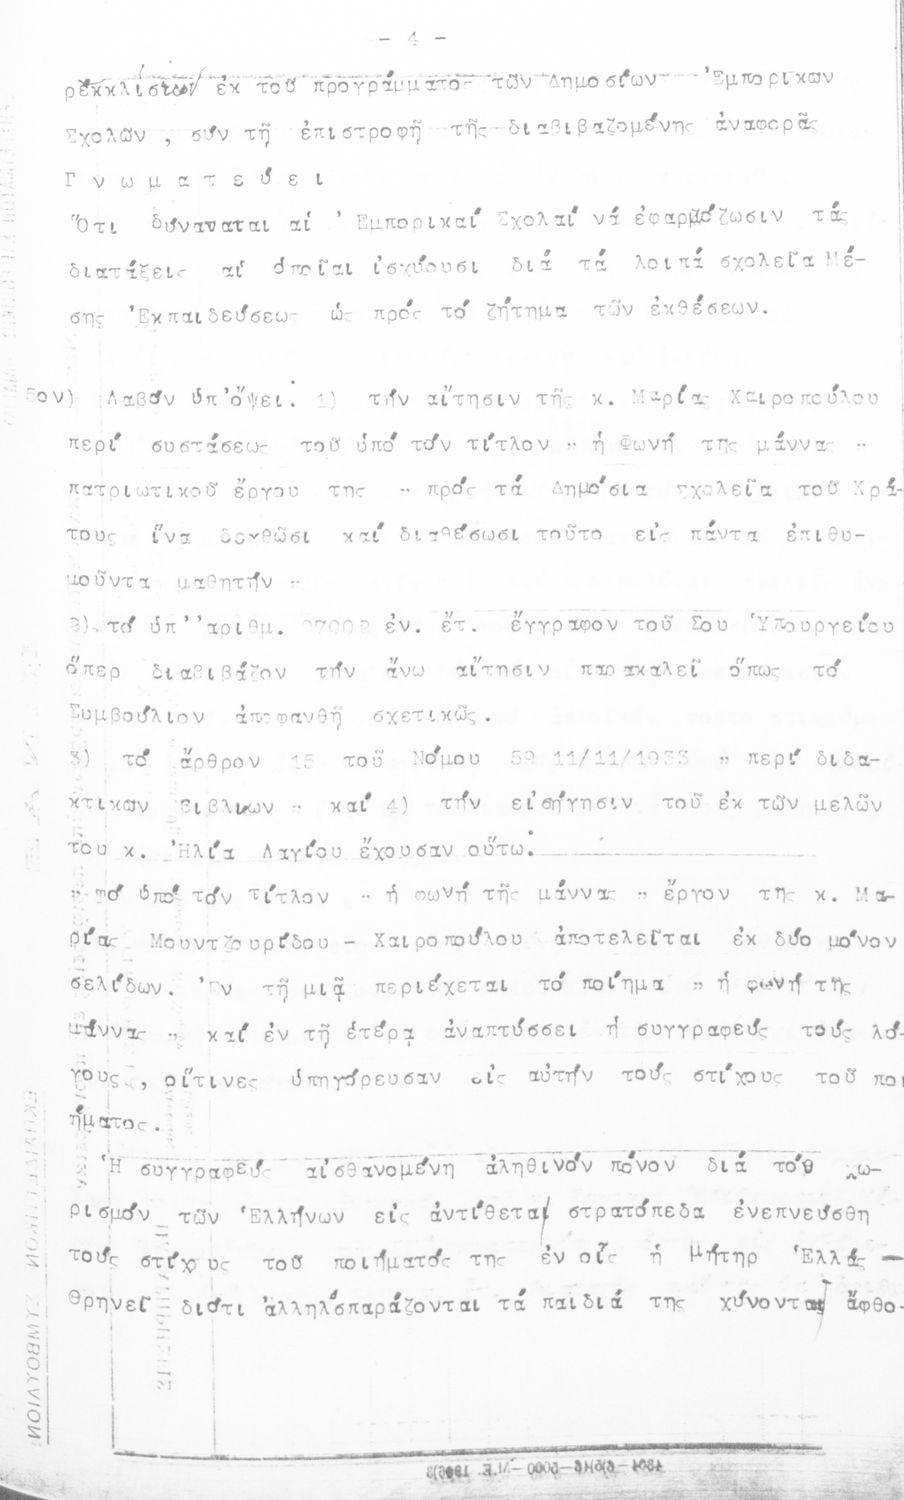 - 4 -
ρέκκλισιν ἐκ τοῦ προγράμματος τῶν Δημοσίων Ἐμπορικῶν
Σχολῶν , σύν τῇ ἐπιστροφῇ τῆς διαβιβαζομένης ἀναφορᾶς
Γ ν ω μ α τ ε ύ ε ι
Ὅτι δύνανται αἱ Ἐμπορικαί Σχολαί νά ἐφαρμόζωσιν τάς
διατάξεις αἱ ὁποῖαι ἰσχύουσι διά τά λοιπά σχολεῖα Μέ-
σης Ἐκπαιδεύσεως ὡς πρός τό ζήτημα τῶν ἐκθέσεων.
5ον) Λαβόν ὑπ'ὄψει: 1) τήν αἴτησιν τῆς κ. Μαρίας Χαιροπούλου
περί συστάσεως τοῦ ὑπό τόν τίτλον " ἡ Φωνή της μάννας "
πατριωτικοῦ ἔργου της " πρός τά Δημόσια σχολεῖα τοῦ Κρά-
τους ἵνα δεχθῶσι καί διαθέσωσι τοῦτο εἰς πάντα ἐπιθυ-
μοῦντα μαθητήν "
2) τό ὑπ''αριθμ. 97002 ἐν. ἔτ. ἔγγραφον τοῦ Σου Ὑπουργείου
ὅπερ διαβιβάζον τήν ἄνω αἴτησιν παρακαλεῖ ὅπως τό
Συμβούλιον ἀποφανθῇ σχετικῶς.
3) τό ἄρθρον 15 τοῦ Νόμου 59 11/11/1933 " περί διδα-
κτικων βιβλιων " καί 4) τήν εἰσήγησιν τοῦ ἐκ τῶν μελῶν
του κ. Ἠλία Λαγίου ἔχουσαν οὕτω:
" τό ὑπό τόν τίτλον " ἡ φωνή τῆς μάννας " ἔργον της κ. Μα-
ρίας Μουντζουρίδου - Χαιροπούλου ἀποτελεῖται ἐκ δύο μόνον
σελίδων. Ἐν τῇ μιᾷ περιέχεται τό ποίημα " ἡ φωνή τῆς
μάννας " καί ἐν τῇ ἑτέρᾳ ἀναπτύσσει ἡ συγγραφεύς τούς λό-
γους , οἵτινες ὑπηγόρευσαν εἰς αὐτήν τούς στίχους τοῦ ποι
ήματος.
Ἡ συγγραφεύς αἰσθανομένη ἀληθινόν πόνον διά τόν χω-
ρισμόν τῶν Ἑλλήνων εἰς ἀντίθετα στρατόπεδα ἐνεπνεύσθη
τούς στίχους τοῦ ποιήματός της ἐν οἷς ἡ Μήτηρ Ἑλλάς
θρηνεῖ διότι ἀλληλοσπαράζονται τά παιδιά της χύνοντα ἄφθο-
ΕΚΠΑΙΔΕΥΤΙΚΟΝ ΣΥΜΒΟΥΛΙΟΝ